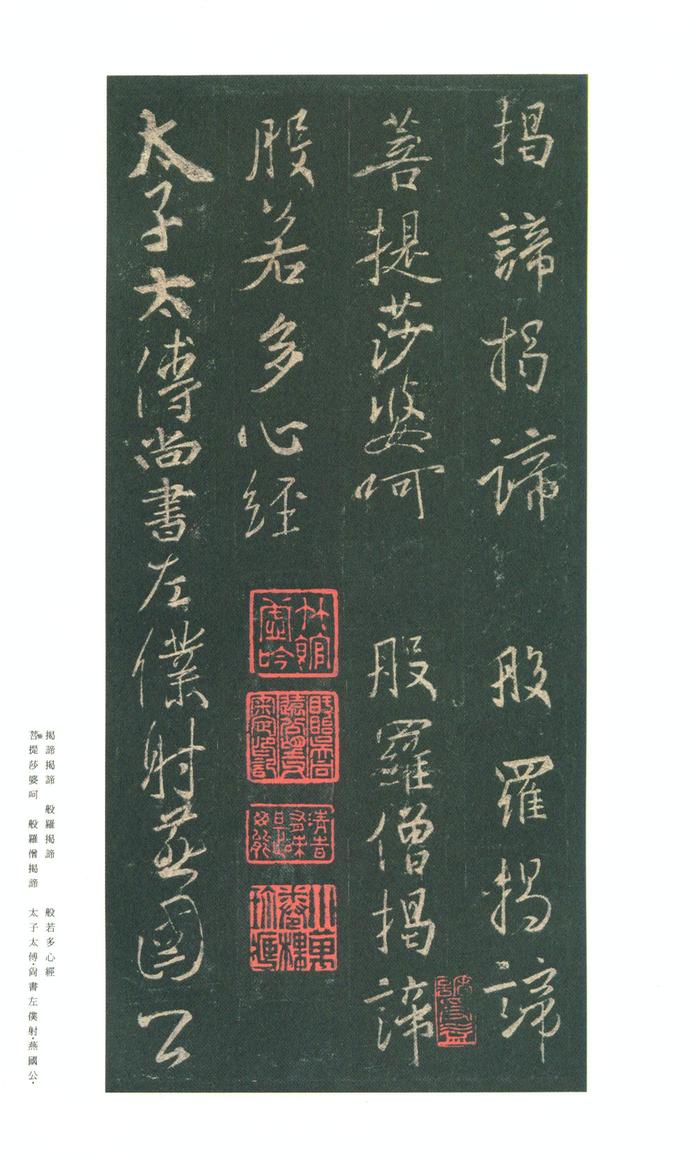 揭諦揭諦 般羅揭諦
菩提莎婆呵 般羅僧揭諦
般若多心經
太子太傅尚書左僕射燕國公
揭諦揭諦 般羅揭諦 般若多心經
菩提莎婆呵 般羅僧揭諦 太子太傅・尚書左僕射・燕國公・